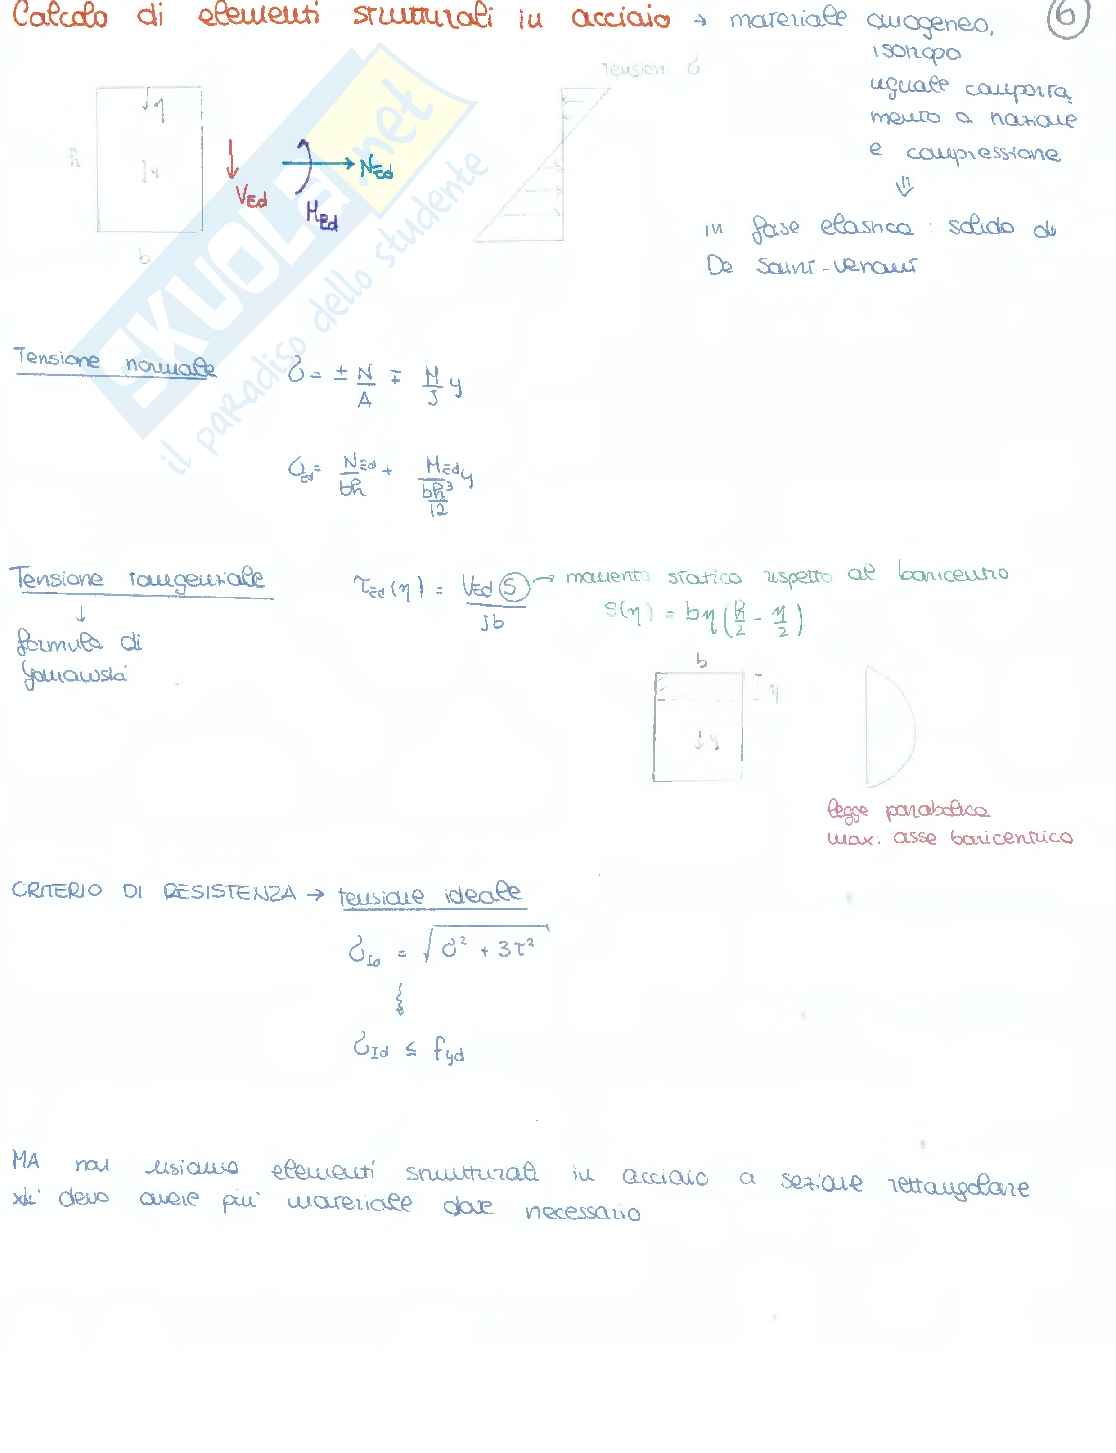 Calcolo di elementi strutturali in acciaio → materiale omogeneo, 6
isotropo
uguale comporta
mento a trazione
e compressione
⇓
in fase elastica : solido di
De Saint-Venant
tensioni σ
η
y
h
b
V_Ed
M_Ed
N_Ed
SKUOLA.net
il paradiso dello studente
Tensione normale σ = ± N/A ∓ M/J y
σ_Ed = N_Ed/bh + M_Ed y/(bh³/12)
Tensione tangenziale τ_Ed(η) = V_Ed S/Jb → momento statico rispetto al baricentro
↓ S(η) = bη(h/2 - η/2)
formula di
Jourawski
b
η
y
legge parabolica
max. asse baricentrico
CRITERIO DI RESISTENZA → tensione ideale
σ_Id = √σ² + 3τ²
σ_Id ≤ f_yd
MA non usiamo elementi strutturali in acciaio a sezione rettangolare
xké devo avere più materiale dove necessario